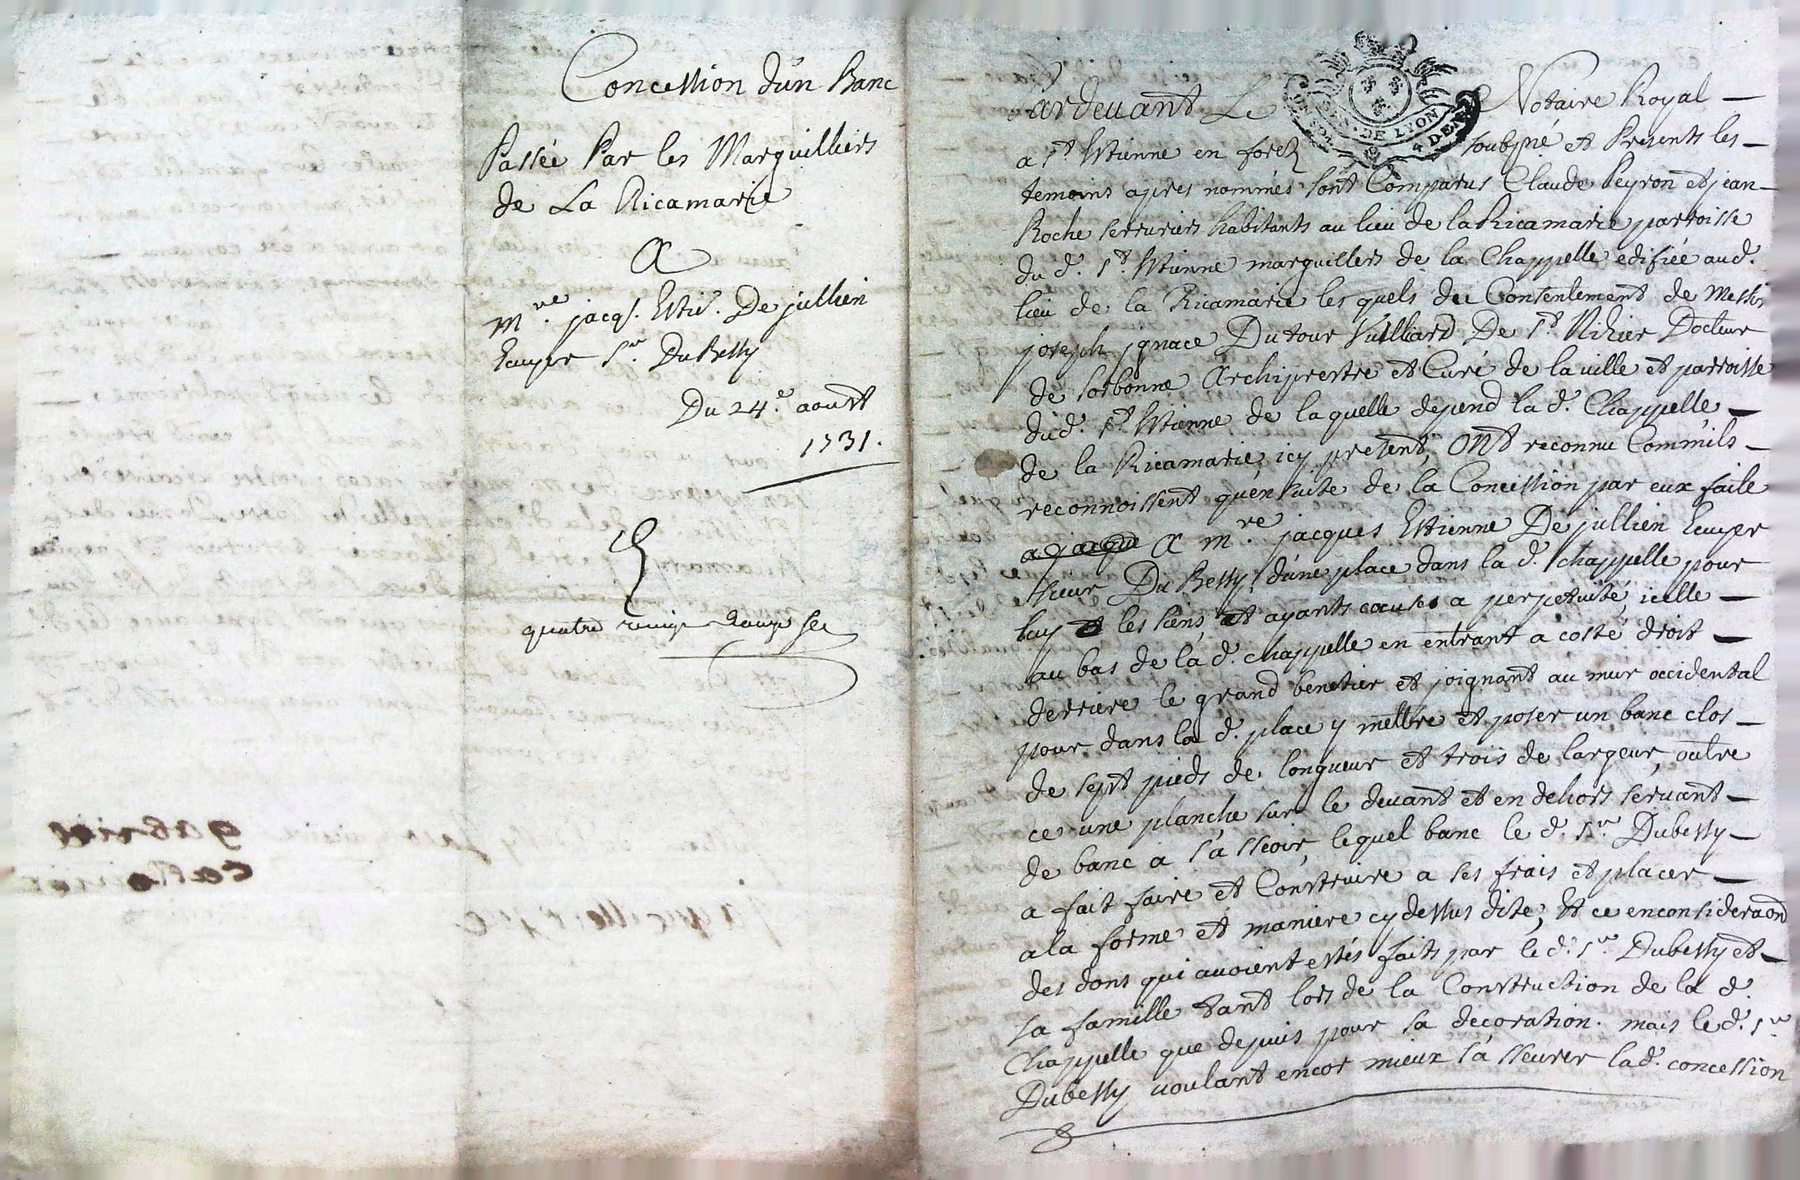 Concession d'un Banc
Passée Par les Marguilliers
de La Ricamarie
A
Mre. jacqs. Etie. De jullien
Ecuyer Sr. Du Bessy
Du 24e. aoust
1731.
quatre vingt douze
ardevant Le Notaire Royal
DE LYON
a St. Etienne en forez soubsné et Presents les
temoins apres nommés sont Comparus Claude Peyron et jean
Roche serruriers habitants au lieu de la Ricamarie parroisse
du d. St. Etienne marguillers de la Chappelle edifiée aud.
lieu de la Ricamarie les quels du Consentement de Messire
joseph ignace Dutour Vulliard De St. Nizier Docteur
de sorbonne Archiprestre et Curé de la ville et parroisse
dud. St. Etienne de laquelle depend la d. Chappelle
de la Ricamarie, icy present, Ont reconnu Comm'ils
reconnoissent qu'en suite de la Concession par eux faite
A Mre. jacques Estienne De jullien Ecuyer
sieur Du Bessy, d'une place dans la d. chappelle pour
luy les siens et ayants causes a perpetuité, icelle
au bas de la d. chappelle en entrant a costé droit
derriere le grand benetier et joignant au mur occidental
pour dans la d. place y mettre et poser un banc clos
de sept pieds de longueur et trois de largeur, outre
ce une planche sur le devant et en dehors servant
de banc a s'asseoir, lequel banc le d. Sr. Dubessy
a fait faire et Construire a ses frais et placer
a la forme et maniere cy dessus dite; Et ce en consideraon
des dons qui avoient estés faits par le d. Sr. Dubessy et
sa famille tant lors de la Construction de la d.
Chappelle que depuis pour sa decoration. mais le d. Sr.
Dubessy voulant encor mieux s'asseurer la d. concession